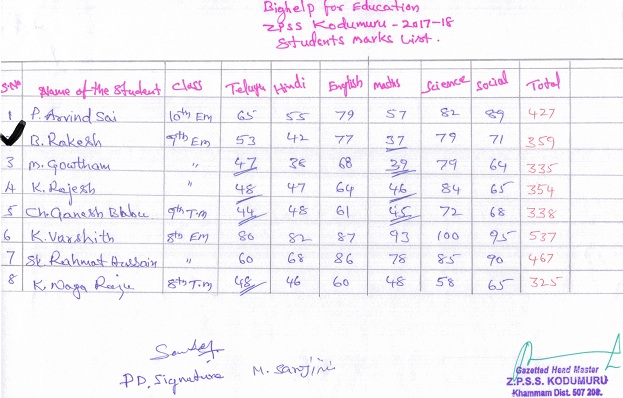 Bighelp for Education
ZPSS Kodumuru - 2017-18
Students Marks List.
S.No Name of the Student Class Telugu Hindi English maths Science Social Total
1 P. Arvind Sai 10th Em 65 55 79 57 82 89 427
B. Rakesh 9th Em 53 42 77 37 79 71 359
3 M. Gowtham " 47 38 68 39 79 64 335
4 K. Rajesh " 48 47 64 46 84 65 354
5 Ch. Ganesh Babu 9th T.m 44 48 61 45 72 68 338
6 K. Varshith 8th Em 80 82 87 93 100 95 537
7 Sk. Rahmat Hussain " 60 68 86 78 85 90 467
8 K. Naga Raju 8th T.m 48 46 60 48 58 65 325
PD. Signature M. Sarojini
Gazetted Head Master
Z.P.S.S. KODUMURU
Khammam Dist. 507 208.